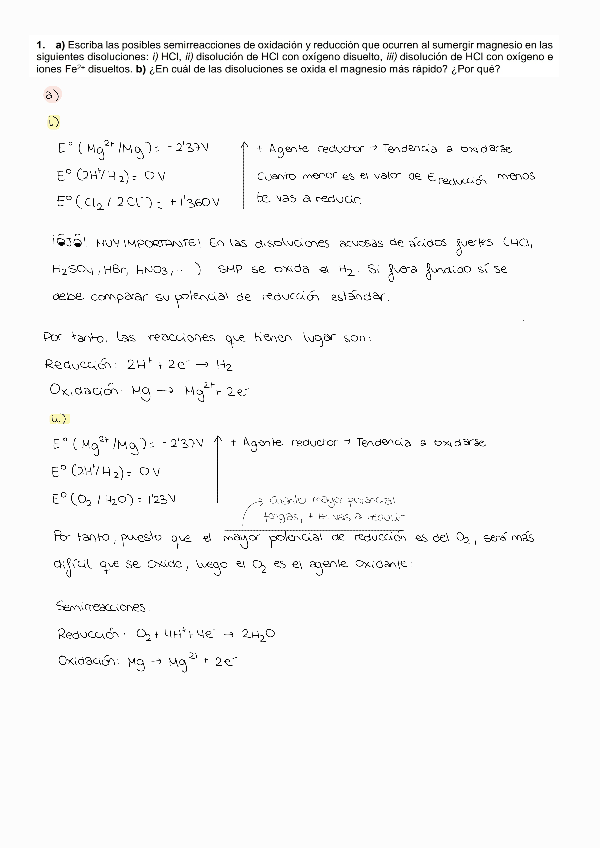 1. a) Escriba las posibles semirreacciones de oxidación y reducción que ocurren al sumergir magnesio en las
siguientes disoluciones: i) HCl, ii) disolución de HCl con oxígeno disuelto, iii) disolución de HCl con oxígeno e
iones Fe²⁺ disueltos. b) ¿En cuál de las disoluciones se oxida el magnesio más rápido? ¿Por qué?
a)
i)
E° (Mg²⁺/Mg) = -2'37V + Agente reductor → Tendencia a oxidarse
E° (2H⁺/H₂) = 0V Cuanto menor es el valor de E reducción menos
E° (Cl₂ / 2Cl⁻) = +1'360V se vas a reducir.
MUY IMPORTANTE! En las disoluciones acuosas de ácidos fuertes (HCl,
H₂SO₄, HBr, HNO₃, ...) SMP se oxida el H₂. Si fuera fundido sí se
debe comparar su potencial de reducción estándar.
Por tanto, las reacciones que tienen lugar son:
Reducción: 2H⁺ + 2e⁻ → H₂
Oxidación: Mg → Mg²⁺ + 2e⁻
ii)
E° (Mg²⁺/Mg) = -2'37V + Agente reductor → Tendencia a oxidarse
E° (2H⁺/H₂) = 0V
E° (O₂ / H₂O) = 1'23V
→ Cuanto mayor potencial
tengas, + te vas a reducir
Por tanto, puesto que el mayor potencial de reducción es del O₂, será más
difícil que se oxide, luego el O₂ es el agente oxidante.
Semirreacciones
Reducción: O₂ + 4H⁺ + 4e⁻ → 2H₂O
Oxidación: Mg → Mg²⁺ + 2e⁻